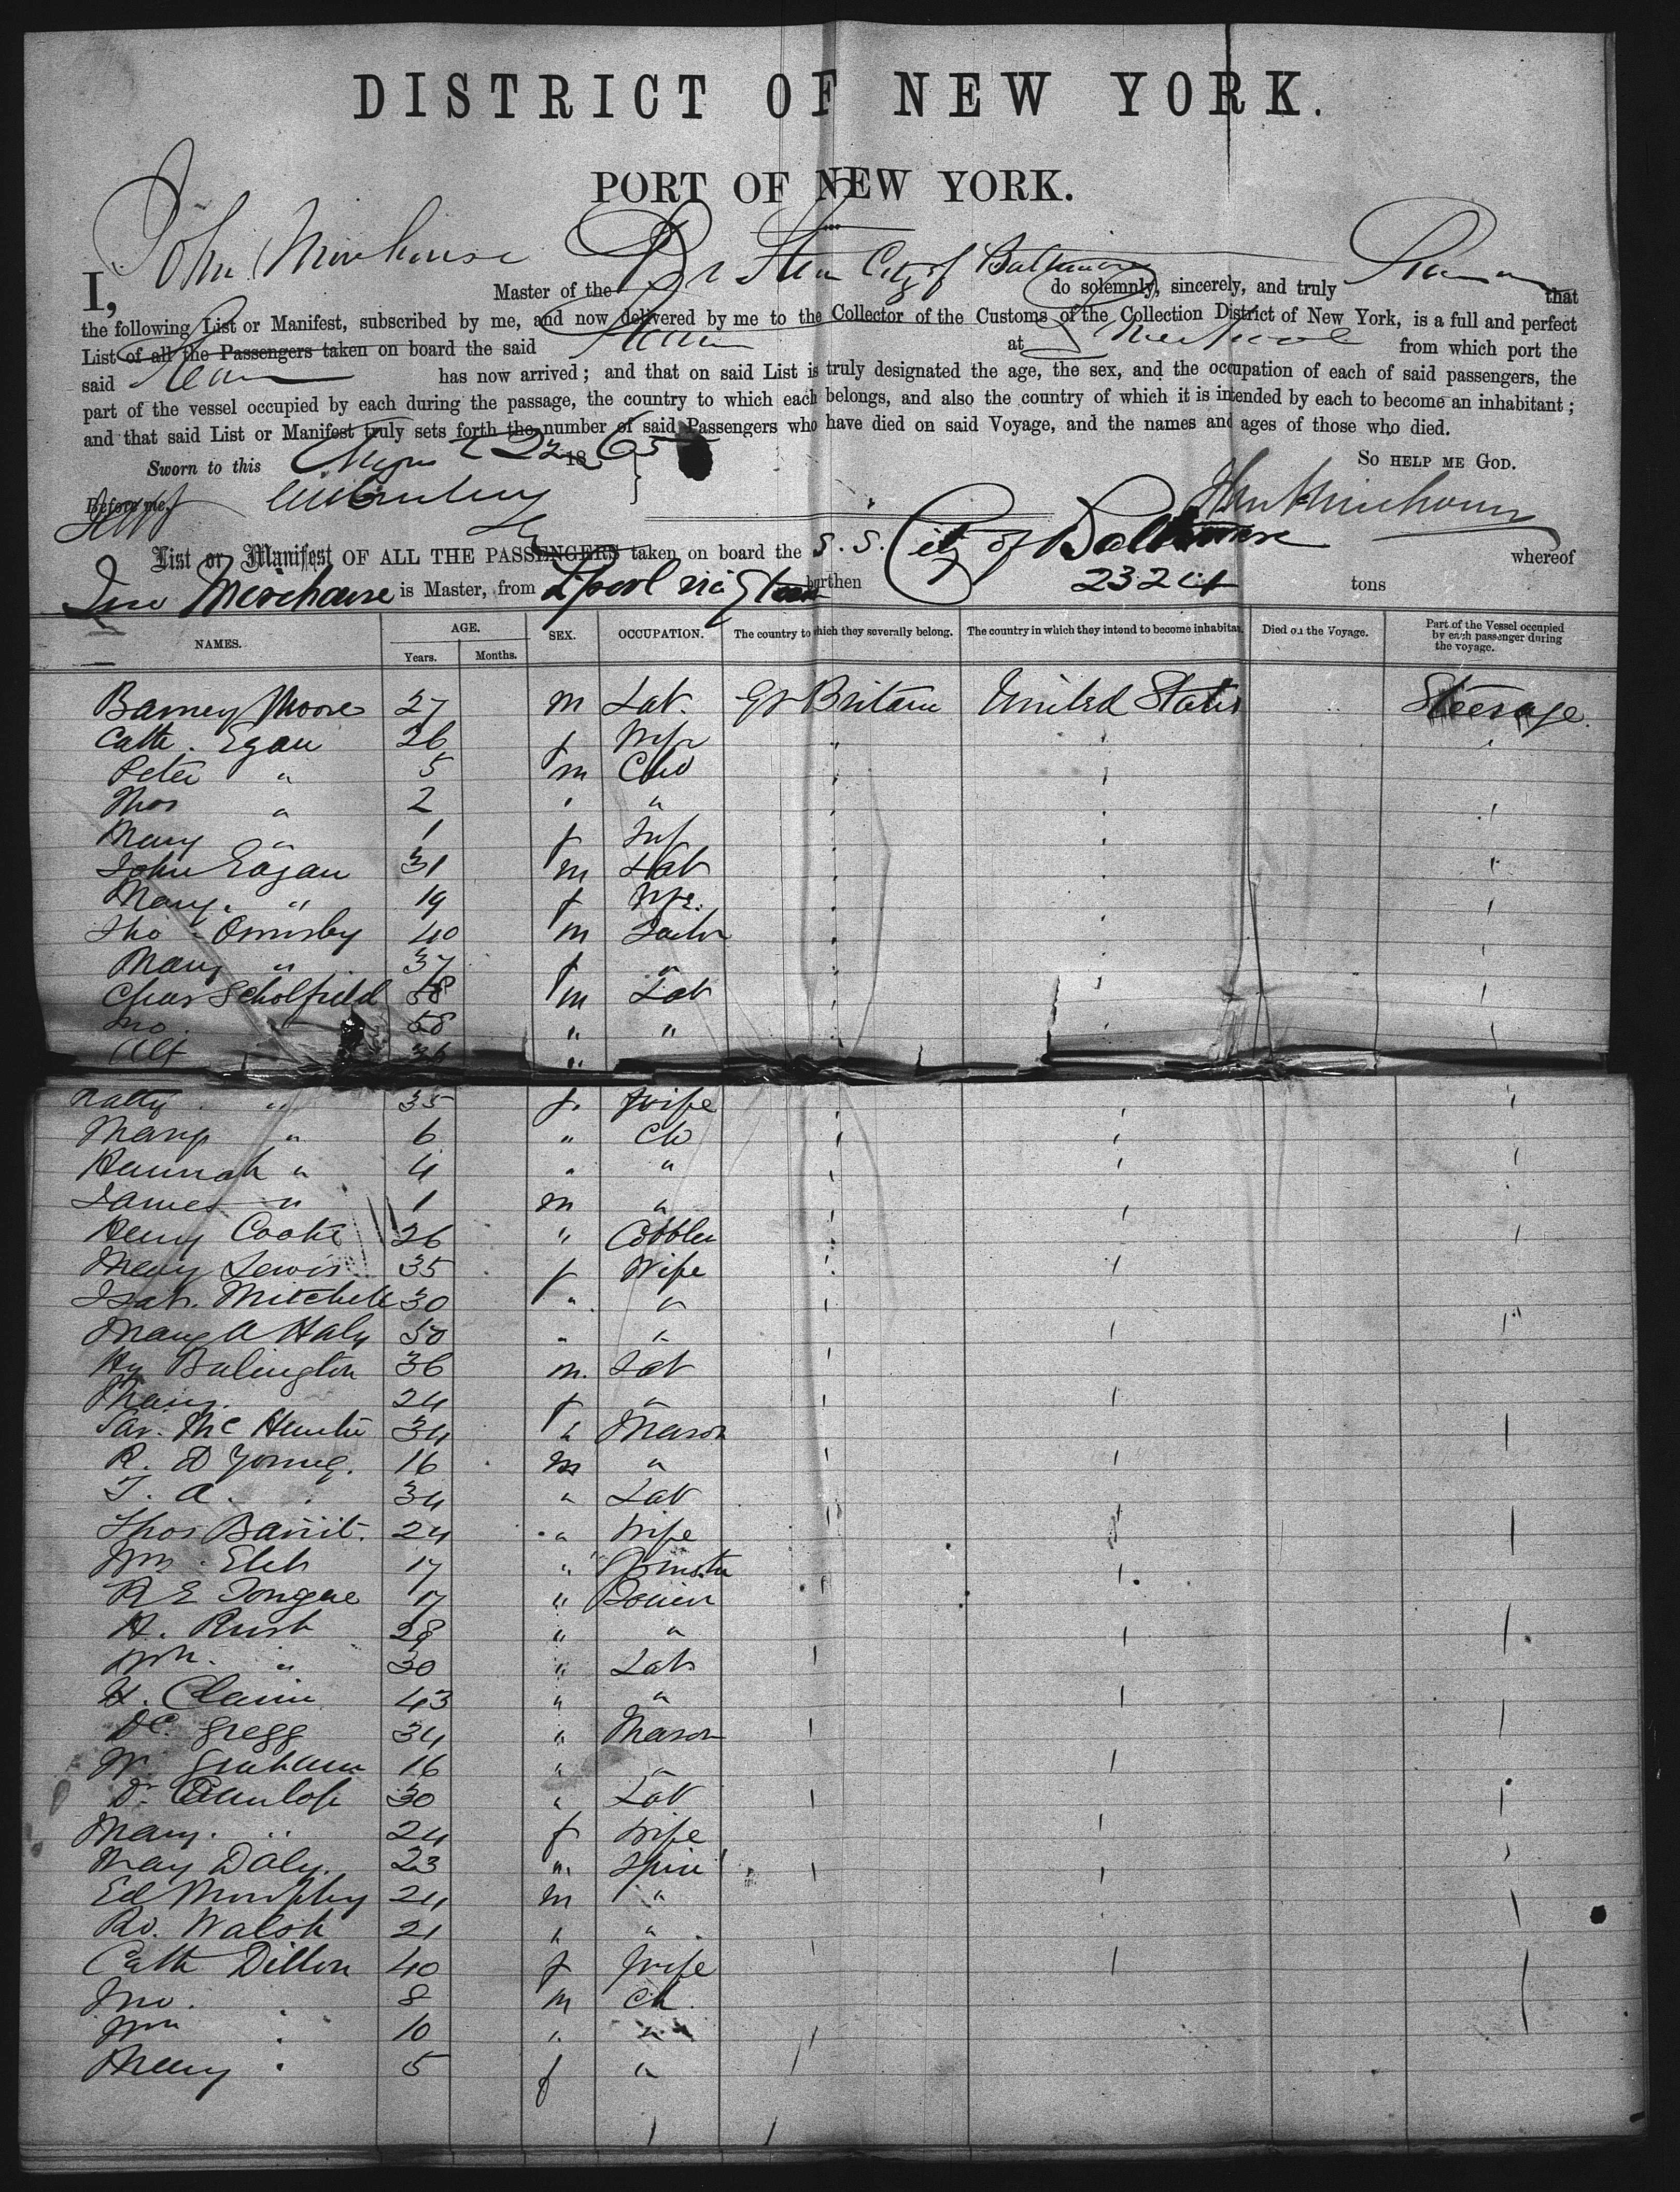 DISTRICT OF NEW YORK.
PORT OF NEW YORK.
I, John Mirehouse Master of the Br Steam City of Baltimore do solemnly, sincerely, and truly that
the following List or Manifest, subscribed by me, and now delivered by me to the Collector of the Customs of the Collection District of New York, is a full and perfect
List of all the Passengers taken on board the said Steam at Liverpool from which port the
said Steam has now arrived; and that on said List is truly designated the age, the sex, and the occupation of each of said passengers, the
part of the vessel occupied by each during the passage, the country to which each belongs, and also the country of which it is intended by each to become an inhabitant;
and that said List or Manifest truly sets forth the number of said Passengers who have died on said Voyage, and the names and ages of those who died.
Sworn to this 22 1865 So help me God.
Before me, John Mirehouse
List or Manifest OF ALL THE PASSENGERS taken on board the S.S. City of Baltimore whereof
Jno Mirehouse is Master, from Lpool via burthen 2324 tons
NAMES. AGE. Years. Months. SEX. OCCUPATION. The country to which they severally belong. The country in which they intend to become inhabitants. Died on the Voyage. Part of the Vessel occupied by each passenger during the voyage.
Barney Moore 27 m Lab. Gt Britain United States Steerage
Cath. Egan 26 f Wife
Peter " 5 m Chd
Thos " 2 " "
Mary " 1 f Inf
John Eagan 31 m Lab
Mary " 19 f Wfe.
Tho Ormsby 40 m Tailor
Mary " 37 f "
Chas Scholfield 38 m Lab
Jno. 58 " "
Alf 36 "
" 35 f. Wife
Mary " 6 " Ch
Hannah " 4 " "
James " 1 m "
Henry Cooke 26 " Cobbler
Mary Lewis 35 f Wife
Isab. Mitchell 30 " "
Mary A Haly 50 " "
Hy Bulington 36 m. Lab
Mary 24 f "
Mc Hunter 34 " Mason
R. D Young. 16 m "
T. A. 34 " Lab
Thos 24 " Wife
Wm 17 "
R E Tongue 17 "
H. Rush 28 " "
Wm. " 30 " Lab
43 " "
Gregg 34 " Mason
W Graham 16 " "
D. Dunlop 30 " Lab
Mary. " 24 f Wife
May Daly. 23 " Spin
Ed Murphy 24 m "
Ro. Walsh 21 " "
Cath Dillon 40 f Wife
Jno. " 8 m Ch.
Wm " 10 " "
Mary " 5 f "